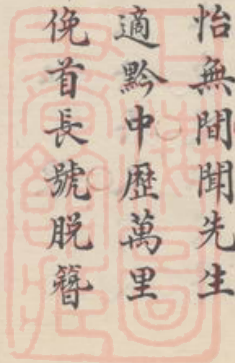 怡無間聞先生
適黔中歷萬里
俛首長號脫簪